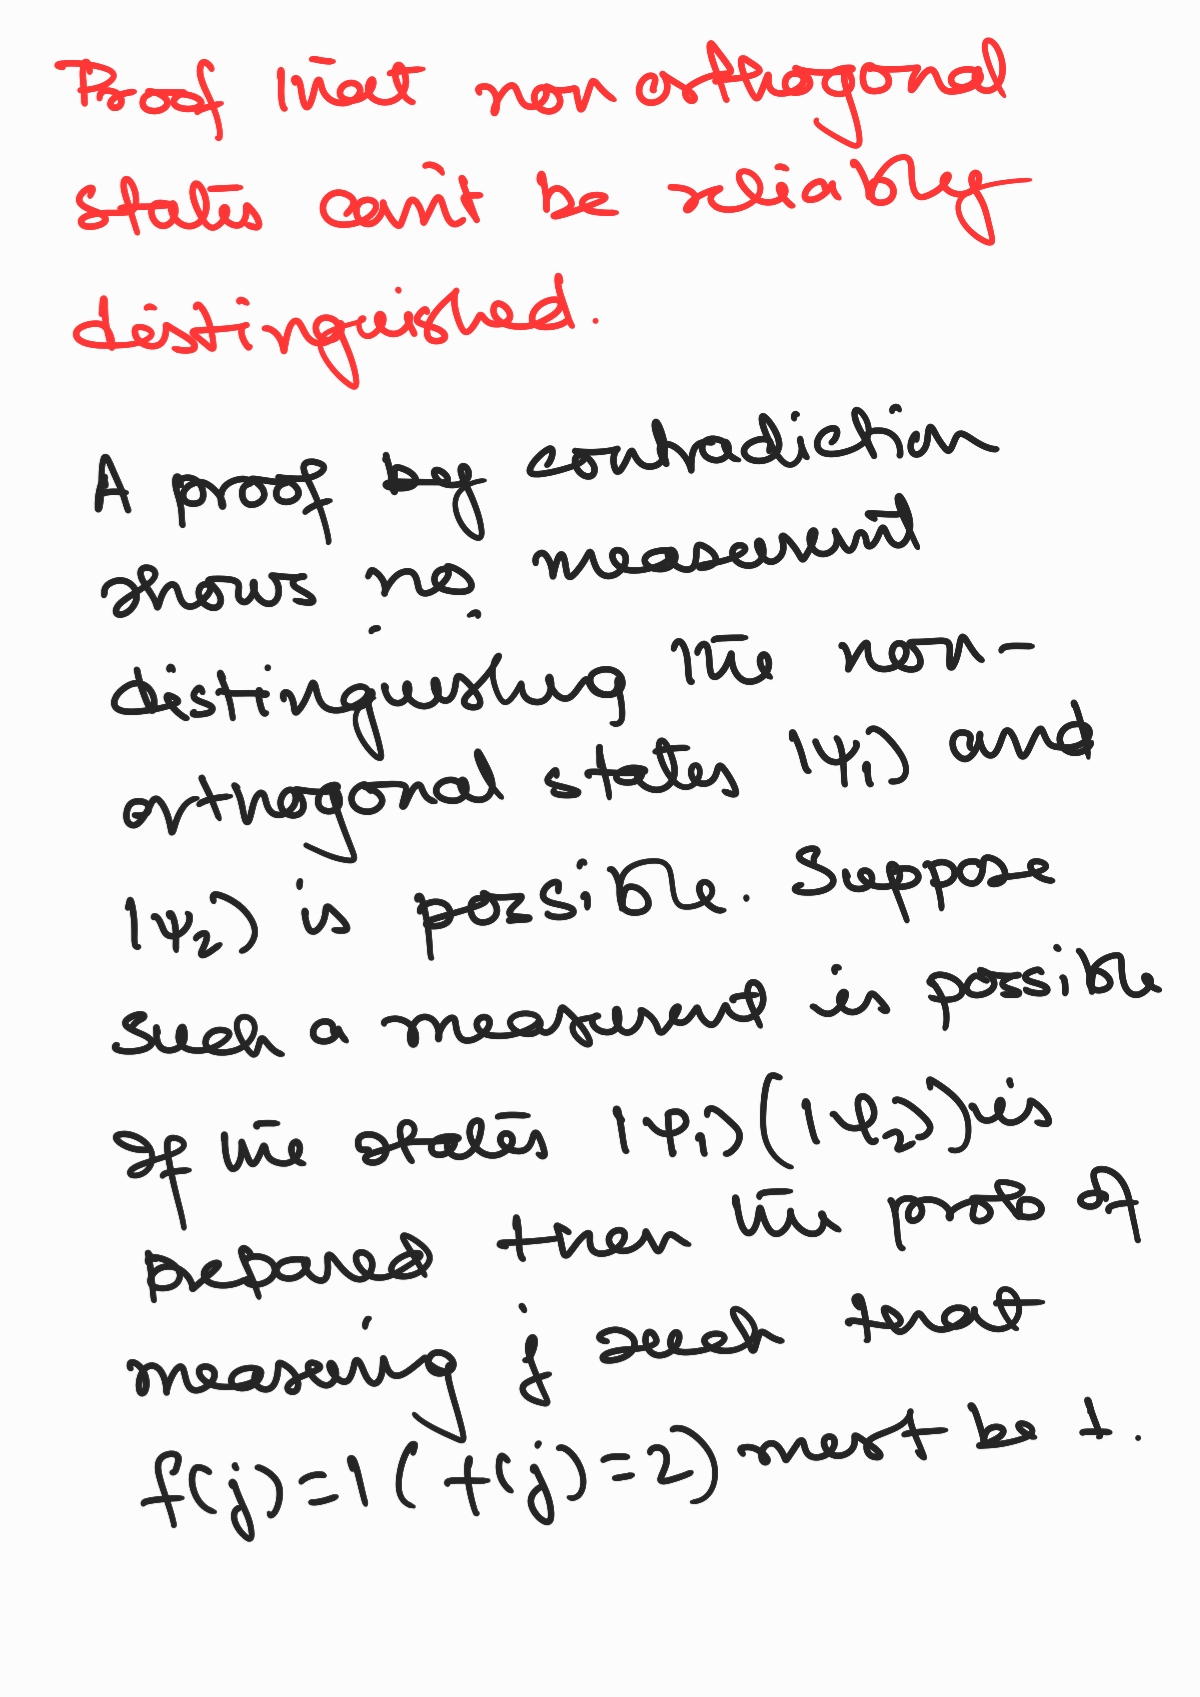 Proof that non orthogonal
states can't be reliably
distinguished.
A proof by contradiction
shows no measurement
distinguishing the non-
orthogonal states |ψ₁⟩ and
|ψ₂⟩ is possible. Suppose
such a measurement is possible
If the states |ψ₁⟩(|ψ₂⟩) is
prepared then the prob of
measuring j such that
f(j)=1 (f(j)=2) must be 1.